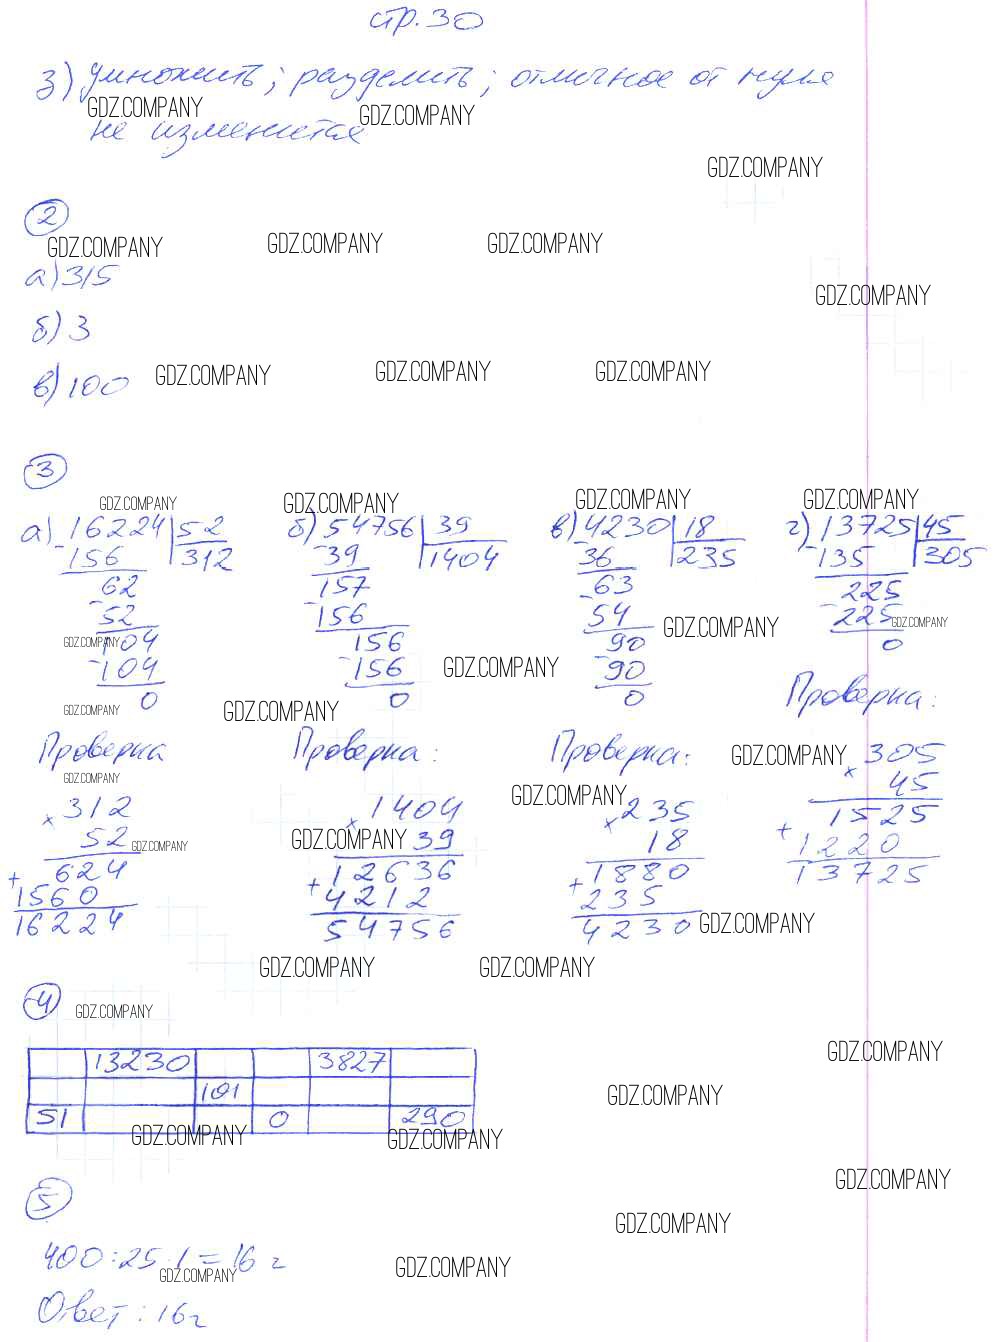 стр. 30
з) умножить; разделить; отличное от нуля
GDZ.COMPANY GDZ.COMPANY
не изменится
GDZ.COMPANY
2
GDZ.COMPANY GDZ.COMPANY GDZ.COMPANY
а) 315
GDZ.COMPANY
б) 3
GDZ.COMPANY GDZ.COMPANY GDZ.COMPANY
в) 100
3
GDZ.COMPANY GDZ.COMPANY GDZ.COMPANY GDZ.COMPANY
а) 16224 52 б) 54756 39 в) 4230 18 г) 13725 45
- 156 312 - 39 1404 - 36 235 - 135 305
62 157 - 63 225
- 52 - 156 54 - 225 GDZ.COMPANY
GDZ.COMPANY 104 156 90 GDZ.COMPANY 0
- 104 - 156 GDZ.COMPANY - 90
0 0 0 Проверка:
GDZ.COMPANY GDZ.COMPANY
Проверка Проверка: Проверка: GDZ.COMPANY × 305
GDZ.COMPANY 45
GDZ.COMPANY
× 312 × 1404 × 235 1525
52 GDZ.COMPANY GDZ.COMPANY 39 18 + 1220
+ 624 12636 1880 13725
1560 + 4212 + 235
16224 54756 4230 GDZ.COMPANY
GDZ.COMPANY GDZ.COMPANY
4 GDZ.COMPANY
13230 3827 GDZ.COMPANY
101 GDZ.COMPANY
51 0 290
GDZ.COMPANY GDZ.COMPANY
GDZ.COMPANY
5
GDZ.COMPANY
400:25·1=16 г
GDZ.COMPANY GDZ.COMPANY
Ответ: 16г